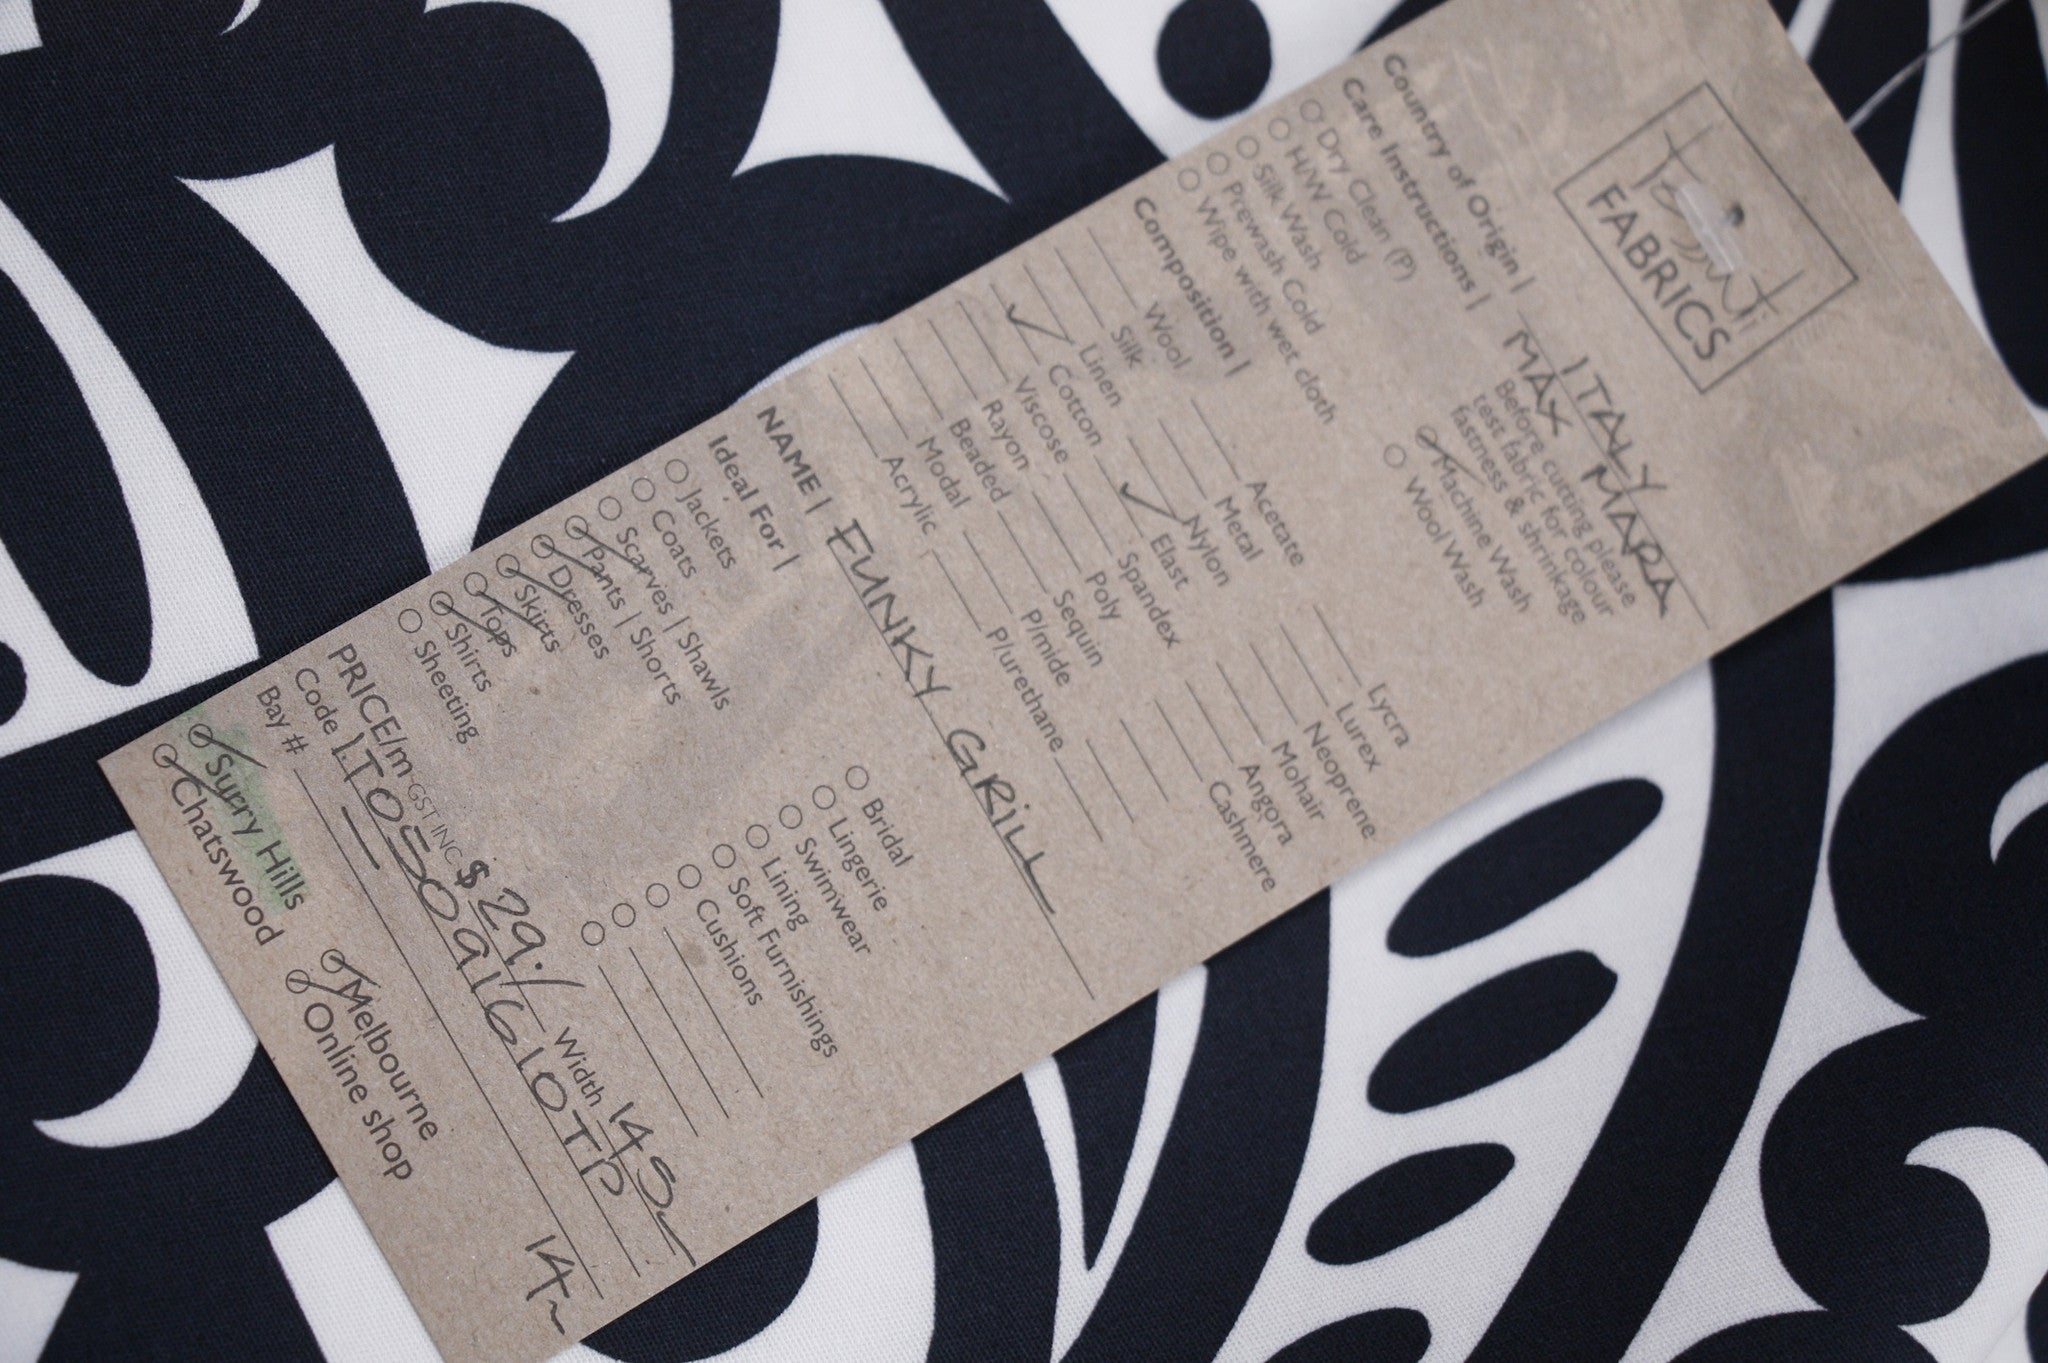 Tessuti
FABRICS
Country of Origin | ITALY
MAX MARA
Care Instructions |
Before cutting please
test fabric for colour
fastness & shrinkage
Dry Clean (P)
H/W Cold
Silk Wash
Prewash Cold
Wipe with wet cloth
Machine Wash
Wool Wash
Composition |
Wool
Silk
Linen
Cotton
Viscose
Rayon
Beaded
Modal
Acrylic
Acetate
Metal
Nylon
Elast
Spandex
Poly
Sequin
P/mide
P/urethane
Lycra
Lurex
Neoprene
Mohair
Angora
Cashmere
NAME | FUNKY GRILL
Ideal For |
Jackets
Coats
Scarves | Shawls
Pants | Shorts
Dresses
Skirts
Tops
Shirts
Sheeting
Bridal
Lingerie
Swimwear
Lining
Soft Furnishings
Cushions
PRICE/m GST INC $ 29./ Width 145
Code
Bay #
14
Surry Hills
Chatswood
Melbourne
Online shop